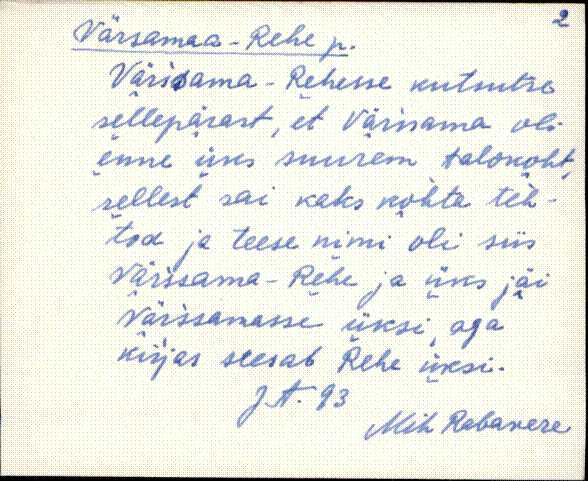 2
Värsamaa-Rehe p.
Värssama-Rehesse kutsutse
sellepärast, et Värssama oli
enne üks suurem talokoht,
sellest sai kaks kohta teh-
tod ja teese nimi oli siis
Värssama-Rehe ja üks jäi
Värssamasse üksi, aga
kirjas seesab Rehe üksi.
J. A. 93
Mih Rabavere